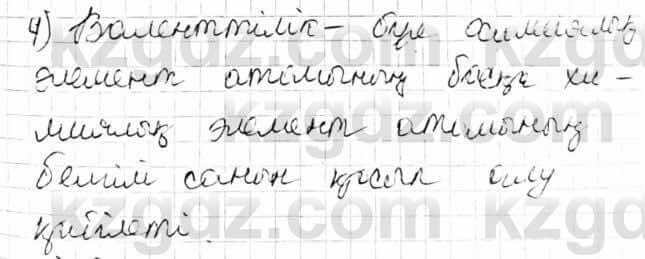 4) Валенттілік – бір химиялық
элемент атомының басқа хи-
миялық элемент атомының
белгілі санын қосып алу
қабілеті
kzgdz.com